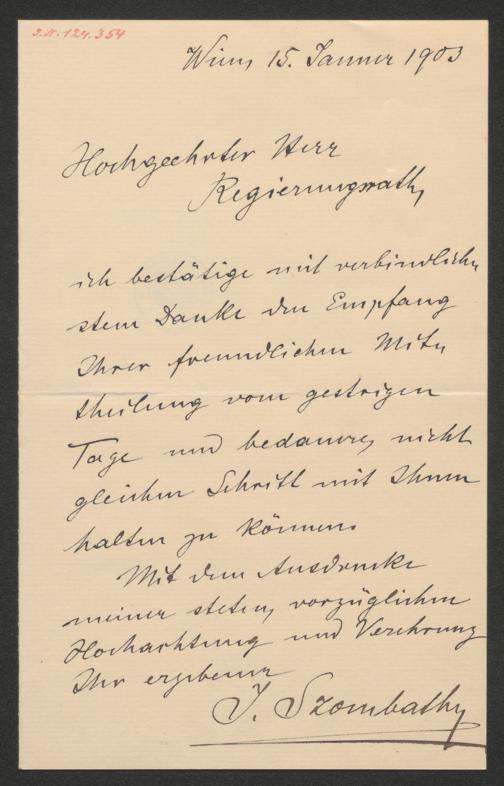 J.N. 124.354
Wien, 15. Jänner 1903
Hochgeehrter Herr
Regierungsrath,
ich bestätige mit verbindlich-
stem Danke den Empfang
Ihrer freundlichen Mit-
theilung vom gestrigen
Tage und bedauere, nicht
gleichen Schritt mit Ihnen
halten zu können.
Mit dem Ausdrucke
meiner steten, vorzüglichen
Hochachtung und Verehrung
Ihr ergebener
J. Szombathy